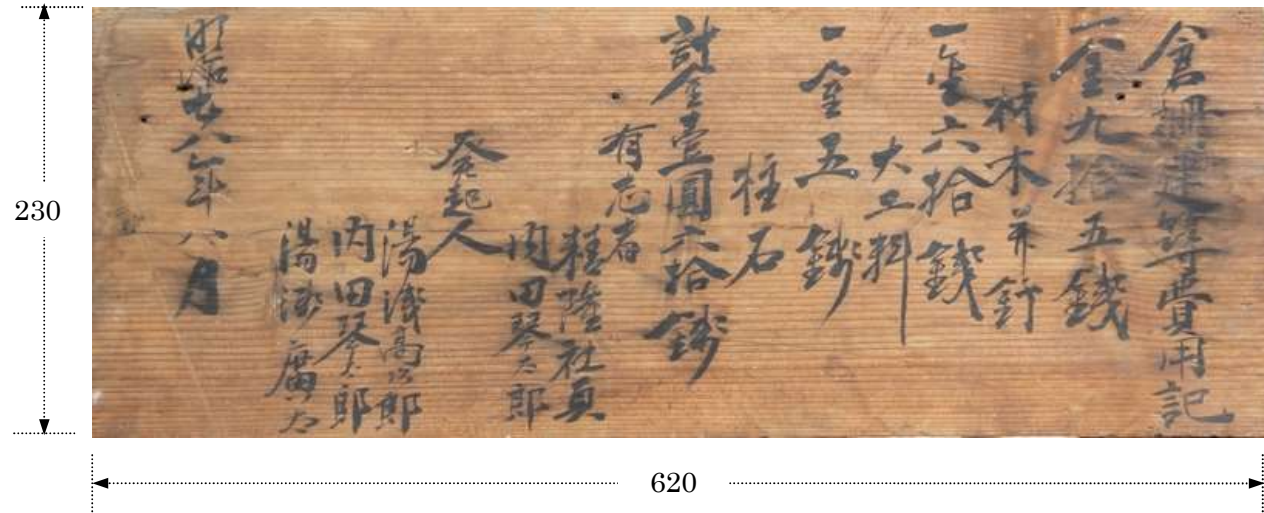 倉柵建築費用記
一金九拾五銭
材木并釘
一金六拾銭
大工料
一金五銭
柱石
計金壹圓六拾銭
有志者
精隆社員
内田琴太郎
発起人
湯浅高次郎
内田琴太郎
湯浅廣太
明治廿八年八月
230
620